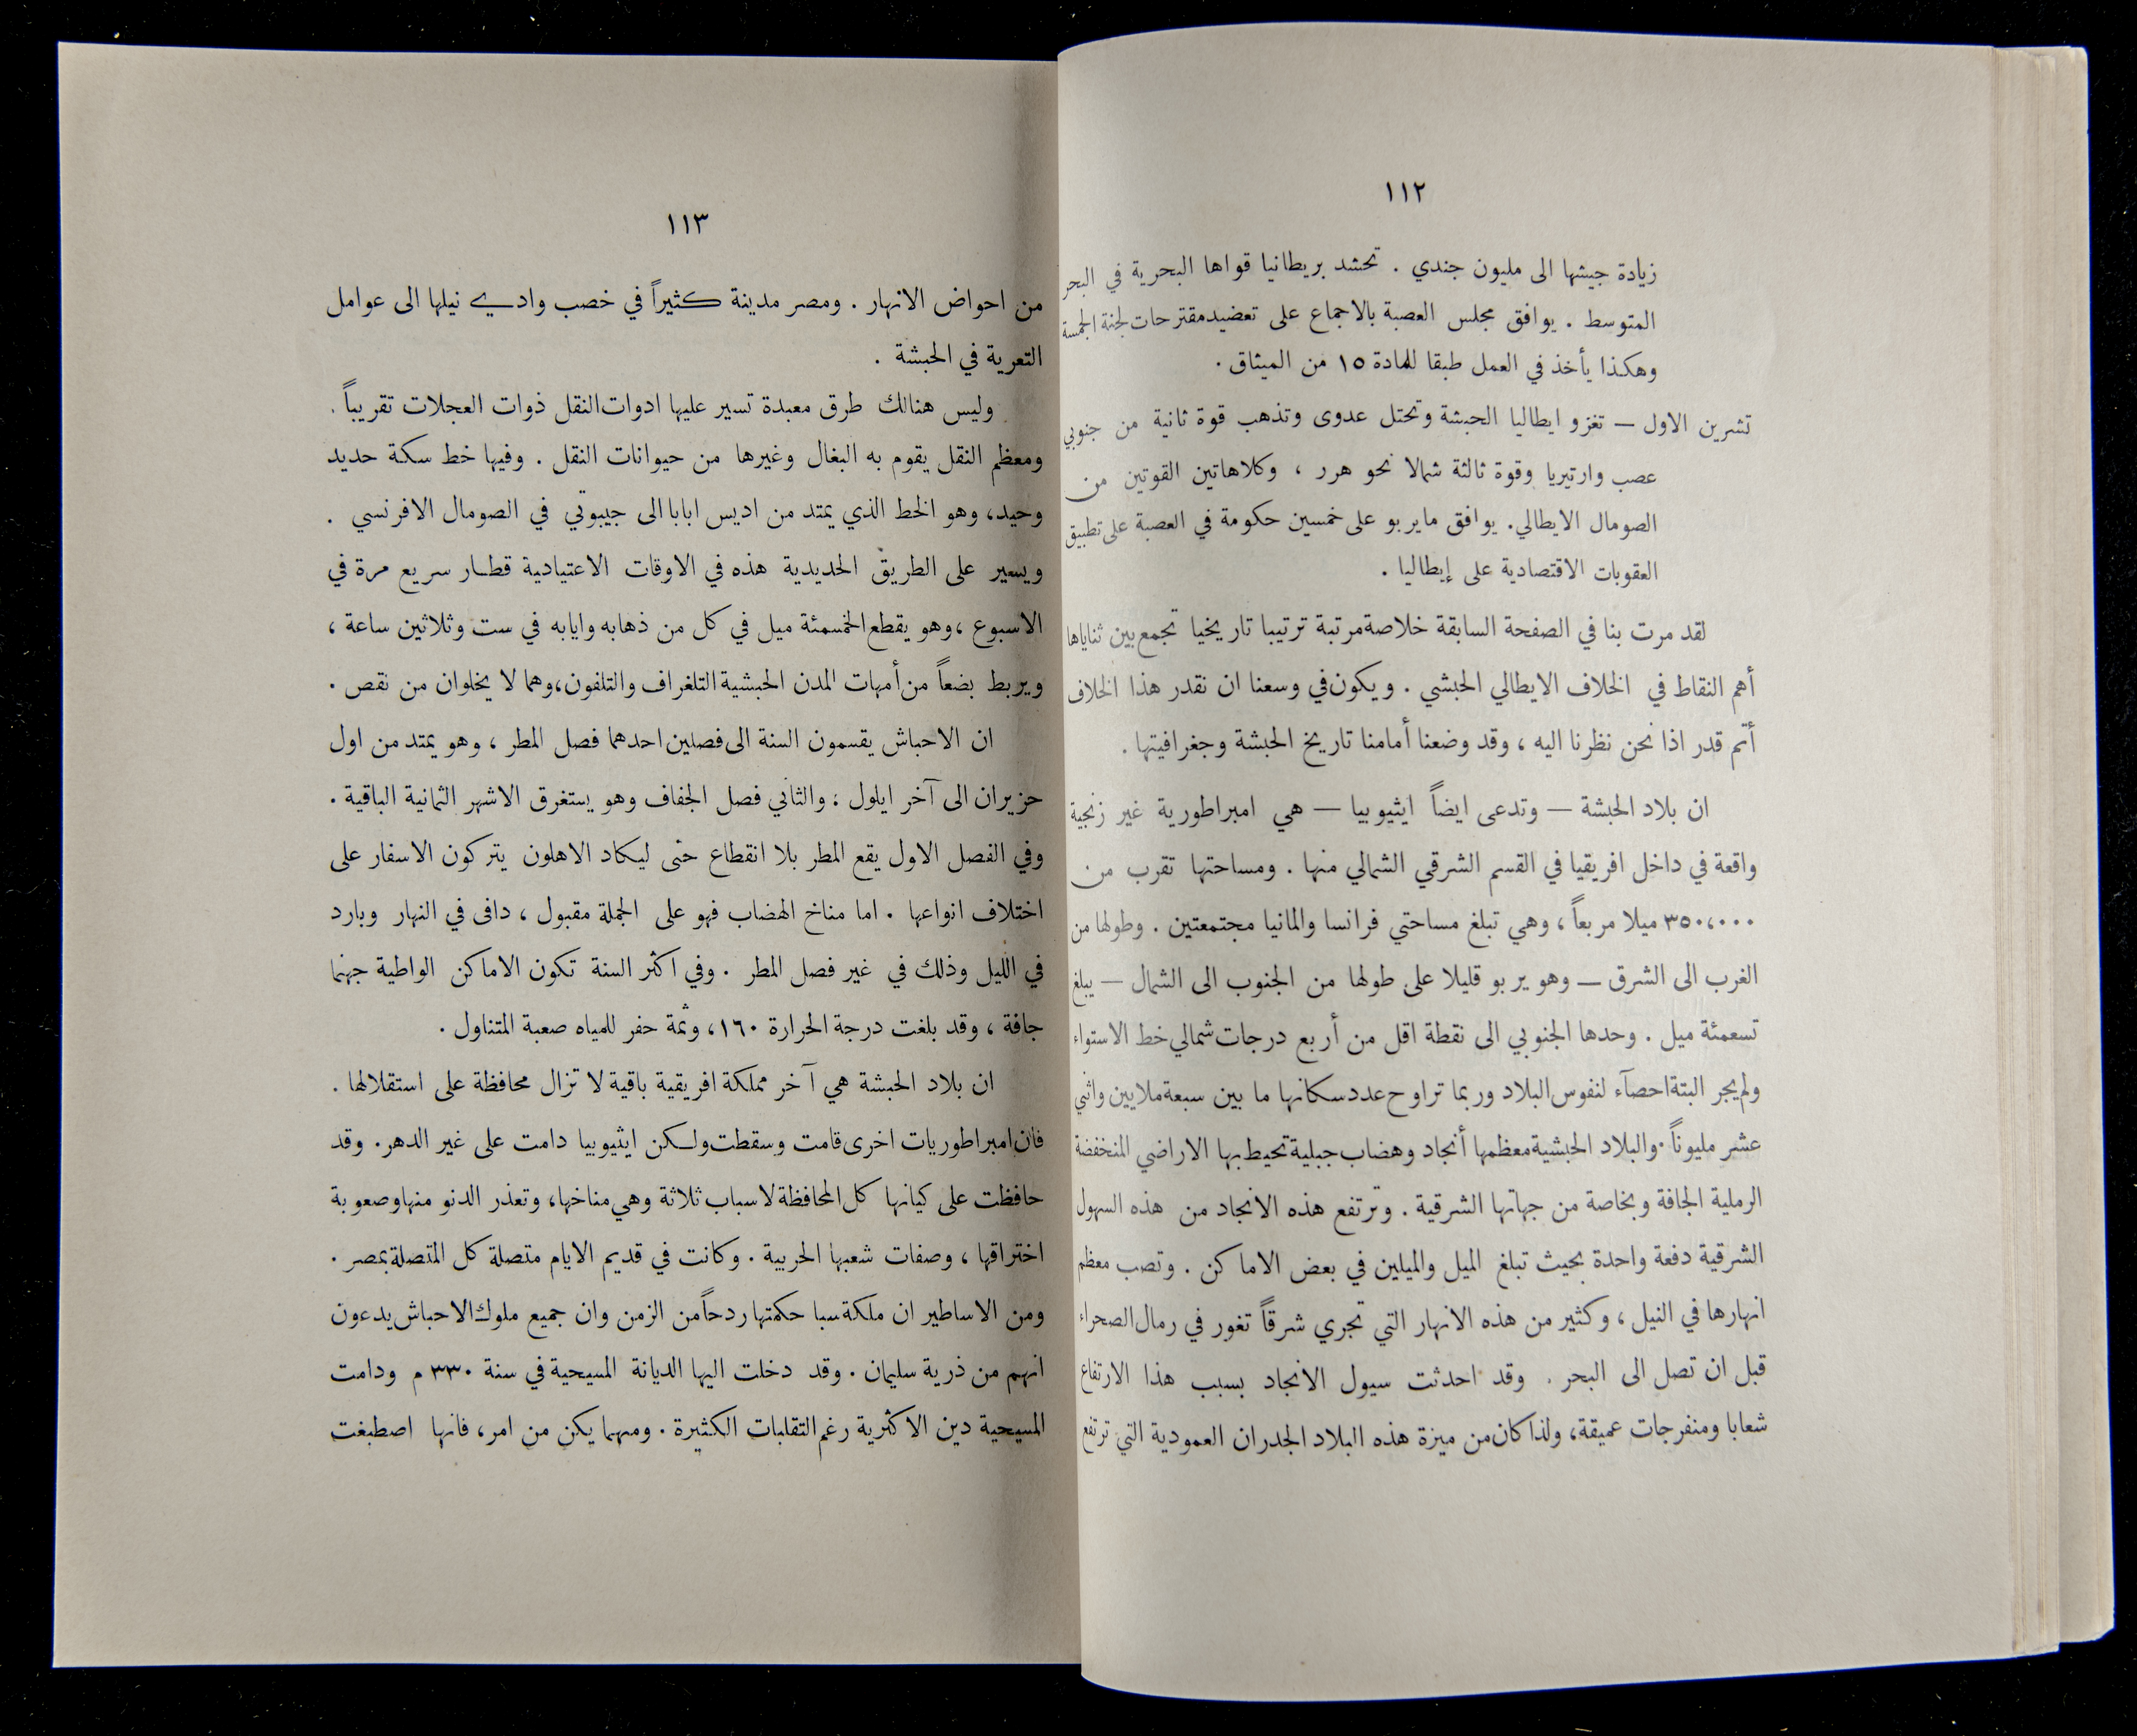 ١١٢
زيادة جيشها الى مليون جندي . تحشد بريطانيا قواها البحرية في البحر
المتوسط . يوافق مجلس العصبة بالاجماع على تعضيد مقترحات لجنة الخمسة
وهكذا يأخذ في العمل طبقا للمادة ١٥ من الميثاق .
تشرين الاول — تغزو ايطاليا الحبشة وتحتل عدوى وتذهب قوة ثانية من جنوبي
عصب وارتيريا وقوة ثالثة شمالا نحو هرر ، وكلاهاتين القوتين من
الصومال الايطالي. يوافق مايربو على خمسين حكومة في العصبة على تطبيق
العقوبات الاقتصادية على إيطاليا .
لقد مرت بنا في الصفحة السابقة خلاصة مرتبة ترتيبا تاريخيا تجمع بين ثناياها
أهم النقاط في الخلاف الايطالي الحبشي . ويكون في وسعنا ان نقدر هذا الخلاف
أتم قدر اذا نحن نظرنا اليه ، وقد وضعنا أمامنا تاريخ الحبشة وجغرافيتها .
ان بلاد الحبشة — وتدعى ايضاً ايثيوبيا — هي امبراطورية غير زنجية
واقعة في داخل افريقيا في القسم الشرقي الشمالي منها . ومساحتها تقرب من
٣٥٠،٠٠٠ ميلا مربعاً ، وهي تبلغ مساحتي فرانسا والمانيا مجتمعتين . وطولها من
الغرب الى الشرق — وهو يربو قليلا على طولها من الجنوب الى الشمال — يبلغ
تسعمئة ميل . وحدها الجنوبي الى نقطة اقل من أربع درجات شمالي خط الاستواء
ولم يجر البتة احصآء لنفوس البلاد وربما تراوح عدد سكانها ما بين سبعة ملايين واثني
عشر مليوناً . والبلاد الحبشية معظمها أنجاد وهضاب جبلية تحيط بها الاراضي المنخفضة
الرملية الجافة وبخاصة من جهاتها الشرقية . وترتفع هذه الانجاد من هذه السهول
الشرقية دفعة واحدة بحيث تبلغ الميل والميلين في بعض الاماكن . وتصب معظم
انهارها في النيل ، وكثير من هذه الانهار التي تجري شرقاً تغور في رمال الصحراء
قبل ان تصل الى البحر . وقد احدثت سيول الانجاد بسبب هذا الارتفاع
شعابا ومنفرجات عميقة، ولذا كان من ميزة هذه البلاد الجدران العمودية التي ترتفع
١١٣
من احواض الانهار . ومصر مدينة كثيراً في خصب وادي نيلها الى عوامل
التعرية في الحبشة .
وليس هنالك طرق معبدة تسير عليها ادوات النقل ذوات العجلات تقريباً .
ومعظم النقل يقوم به البغال وغيرها من حيوانات النقل . وفيها خط سكة حديد
وحيد، وهو الخط الذي يمتد من اديس ابابا الى جيبوتي في الصومال الافرنسي .
ويسير على الطريق الحديدية هذه في الاوقات الاعتيادية قطار سريع مرة في
الاسبوع ،وهو يقطع الخمسمئة ميل في كل من ذهابه وايابه في ست وثلاثين ساعة ،
ويربط بضعاً من أمهات المدن الحبشية التلغراف والتلفون،وهما لا يخلوان من نقص .
ان الاحباش يقسمون السنة الى فصلين احدهما فصل المطر ، وهو يمتد من اول
حزيران الى آخر ايلول ؛ والثاني فصل الجفاف وهو يستغرق الاشهر الثمانية الباقية .
وفي الفصل الاول يقع المطر بلا انقطاع حتى ليكاد الاهلون يتركون الاسفار على
اختلاف انواعها . اما مناخ الهضاب فهو على الجملة مقبول ، دافى في النهار وبارد
في الليل وذلك في غير فصل المطر . وفي اكثر السنة تكون الاماكن الواطية جهنما
جافة ، وقد بلغت درجة الحرارة ١٦٠، وثمة حفر للمياه صعبة المتناول .
ان بلاد الحبشة هي آخر مملكة افريقية باقية لا تزال محافظة على استقلالها .
فان امبراطوريات اخرى قامت وسقطت ولكن ايثيوبيا دامت على غير الدهر. وقد
حافظت على كيانها كل المحافظة لاسباب ثلاثة وهي مناخها، وتعذر الدنو منها وصعوبة
اختراقها ، وصفات شعبها الحربية . وكانت في قديم الايام متصلة كل المتصلة بمصر .
ومن الاساطير ان ملكة سبا حكمتها ردحاً من الزمن وان جميع ملوك الاحباش يدعون
انهم من ذرية سليمان . وقد دخلت اليها الديانة المسيحية في سنة ٣٣٠ م ودامت
المسيحية دين الاكثرية رغم التقلبات الكثيرة . ومهما يكن من امر، فانها اصطبغت